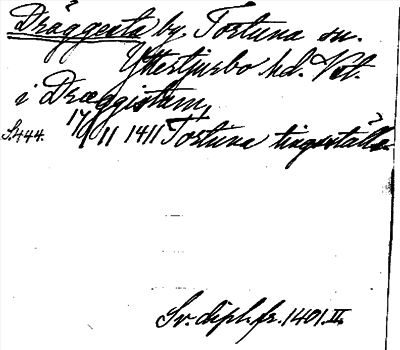 Dräggesta by, Tortuna sn.
Yttertjurbo hd. Vst.
i Dræggistum,
S. 444. 17/11 1411 Tortuna tingställe
Sv. dipl. fr. 1401. II.